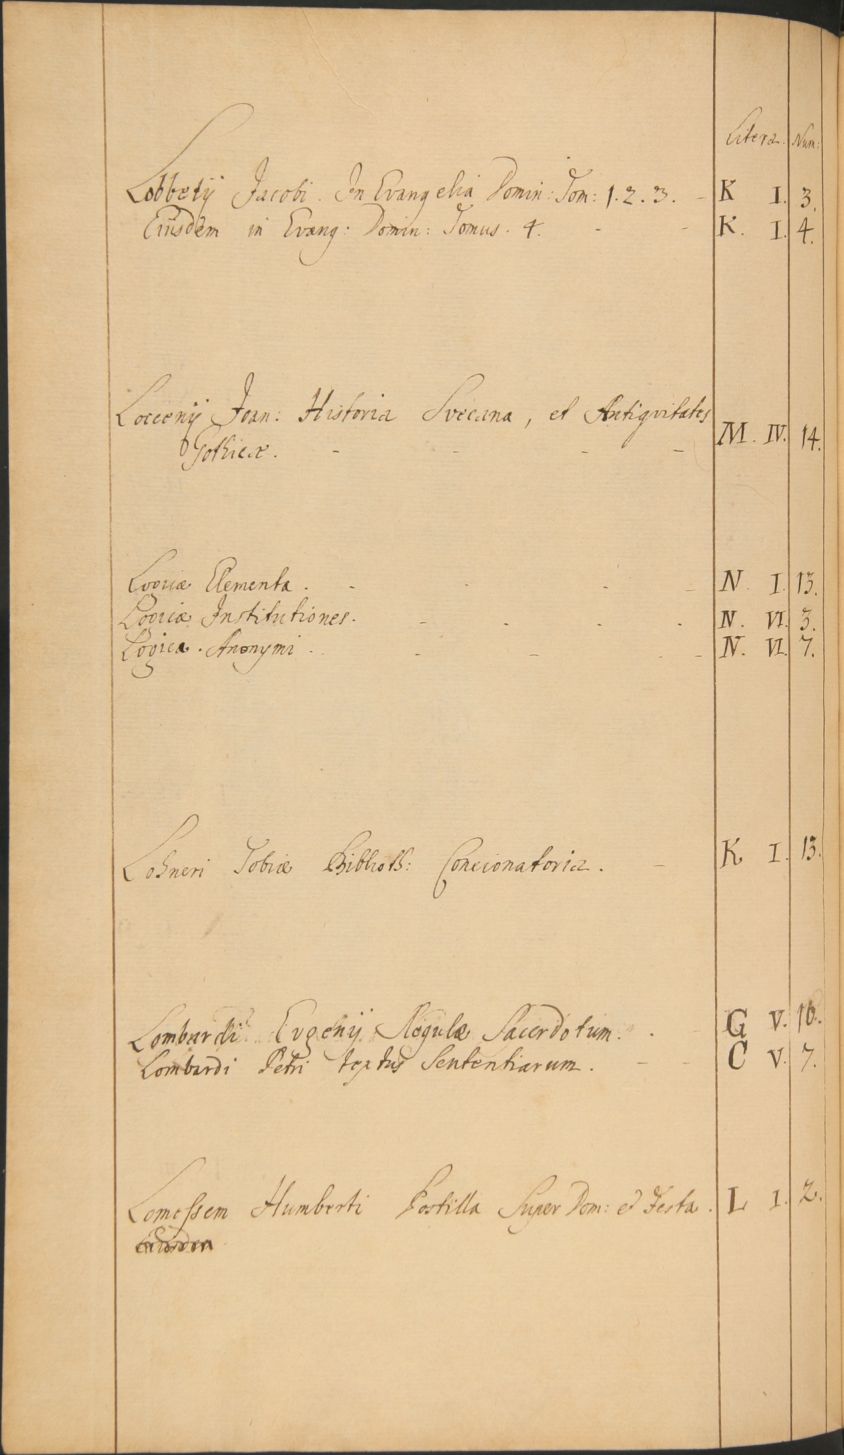 Litera. Num:
Lobbetij Jacobi. In Evangelia Domin: Tom: 1. 2. 3. - K I. 3.
Eiusdem in Evang: Domin: Tomus. 4. - - K. I. 4.
Loccenij Joan: Historia Svecana, et Antiqvitates
Gothicæ. - - - - M. IV. 14.
Logicæ Elementa. - - - - N. I. 13.
Logicæ Institutiones. - - - - N. VI. 3.
Logica. Anonymi. - - - - N. VI. 7.
Lohneri Tobiæ Biblioth: Concionatoria. - K I. 13.
Lombardi Evgenij Regulæ Sacerdotum. - - G V. 16.
Lombardi Petri textus Sententiarum. - - C V. 7.
Lomessem Humberti Postilla Super Dom: et Festa. L I. 2.